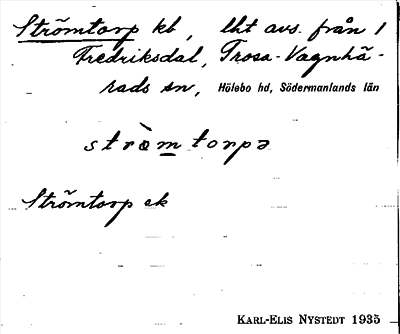 Strömtorp kb, lht avs. från 1
Fredriksdal, Trosa-Vagnhä-
rads sn, Hölebo hd, Södermanlands län
stròmtorpə
Strömtorp ek
KARL-ELIS NYSTEDT 1935